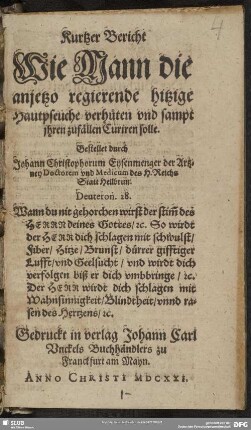 Kurtzer Bericht
Wie Mann die
anjetzo regierende hitzige
Hautpseuche verhüten vnd sampt
jhren zufällen Curiren solle.
Gestellet durch
Johann Christophorum Eysenmenger der Artz-
ney Doctorem vnd Medicum des H. Reichs
Statt Heilbrun.
Deuteron. 28.
Wann du nit gehorchen wirst der stim̃ des
HERRN deines Gottes/ ꝛc. So wirdt
der HERR dich schlagen mit schwulst/
Fiber/ Hitze/ Brunst/ dürrer gifftiger
Lufft/ vnd Geelsucht/ vnd wirdt dich
verfolgen biß er dich vmbbringe/ ꝛc.
Der HERR wirdt dich schlagen mit
Wahnsinnigkeit/ Blindtheit/ vnnd ra-
sen des Hertzens/ ꝛc.
Gedruckt in verlag Johann Carl
Vnckels Buchhändlers zu
Franckfurt am Mayn.
ANNO CHRISTI MDCXXI.
SLUB